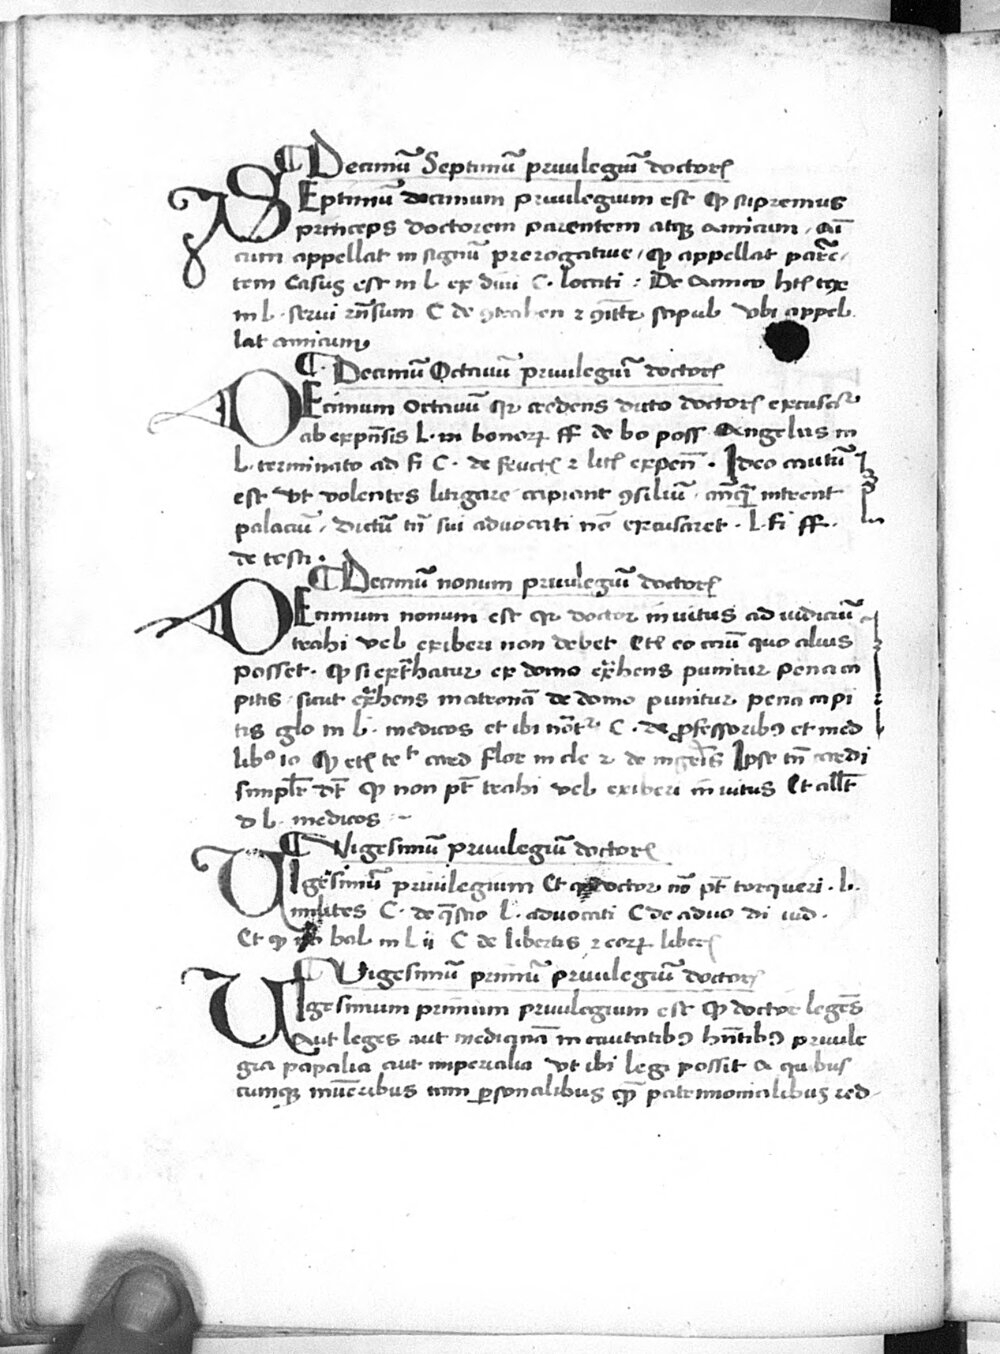 ¶ Decimũ Septimũ priuilegiũ doctorꝭ
SEptimũ decimum priuilegium est ꝙ supremus
princeps doctorem parentem atqꝫ amicum, Ami
cum appellat in signũ prerogatiue, ꝙ appellat parē
tem Casus est in l. ex diui C. locati : De amico
in l. serui C de ꝯtrahen ⁊ stipul vbi appel
lat amicum
¶ Decimũ Octauũ priuilegiũ doctorꝭ
DEcimum Octauũ qꝛ credens dicto doctorꝭ excusat᷑
ab expēsis l. in bonorꝝ ff de bo poss Angelus in
l. terminato ad fi C. de fructꝭ ⁊ litꝭ expeñ. Ideo cautũ
est vt volentes litigare capiant ꝯsiliũ, anqꝫ intrent
palaciũ, dictũ tñ sui aduocati nõ excusaret. l. fi ff.
de testi.
¶ Decimũ nonum priuilegiũ doctorꝭ
DEcimum nonum est qꝛ doctor inuitus ad iudiciũ
trahi vel exiberi non debet Etꝭ eo casũ quo alius
posset. ꝙ si ext̃hatur ex domo ext̃hens punitur pena ca
pitis. sicut ext̃hens matronã de domo punitur pena capi
tis glo in l. medicos et ibi not̃ C. de ꝓfessoribꝰ et med
libº 10 ꝙ etꝭ card flor in cle ⁊ de mgr̃is Ipse tñ credi
simplr̃ dt̃ ꝙ non pt̃ trahi vel exiberi inuitus Et all̃t
d l. medicos
¶ Vigesimũ priuilegiũ doctorꝭ
VIgesimũ priuilegium Et ꝙ doctor nõ pt̃ torqueri. l.
milites C. de q̃stio l. aduocati C de aduo di iud.
Et ꝙ bal in l ii C de libertis ⁊ eorꝝ liberꝭ
¶ Vigesimũ primũ priuilegiũ doctorꝭ
VIgesimum primum priuilegium est ꝙ doctor legẽs
Aut leges aut medicinã in ciuitatibꝰ hñtibꝰ priuile
gia papalia aut imperialia vt ibi legi possit a quibus
cumqꝫ mũeribus tam ꝑsonalibus qꝫ patrimonialibus red-